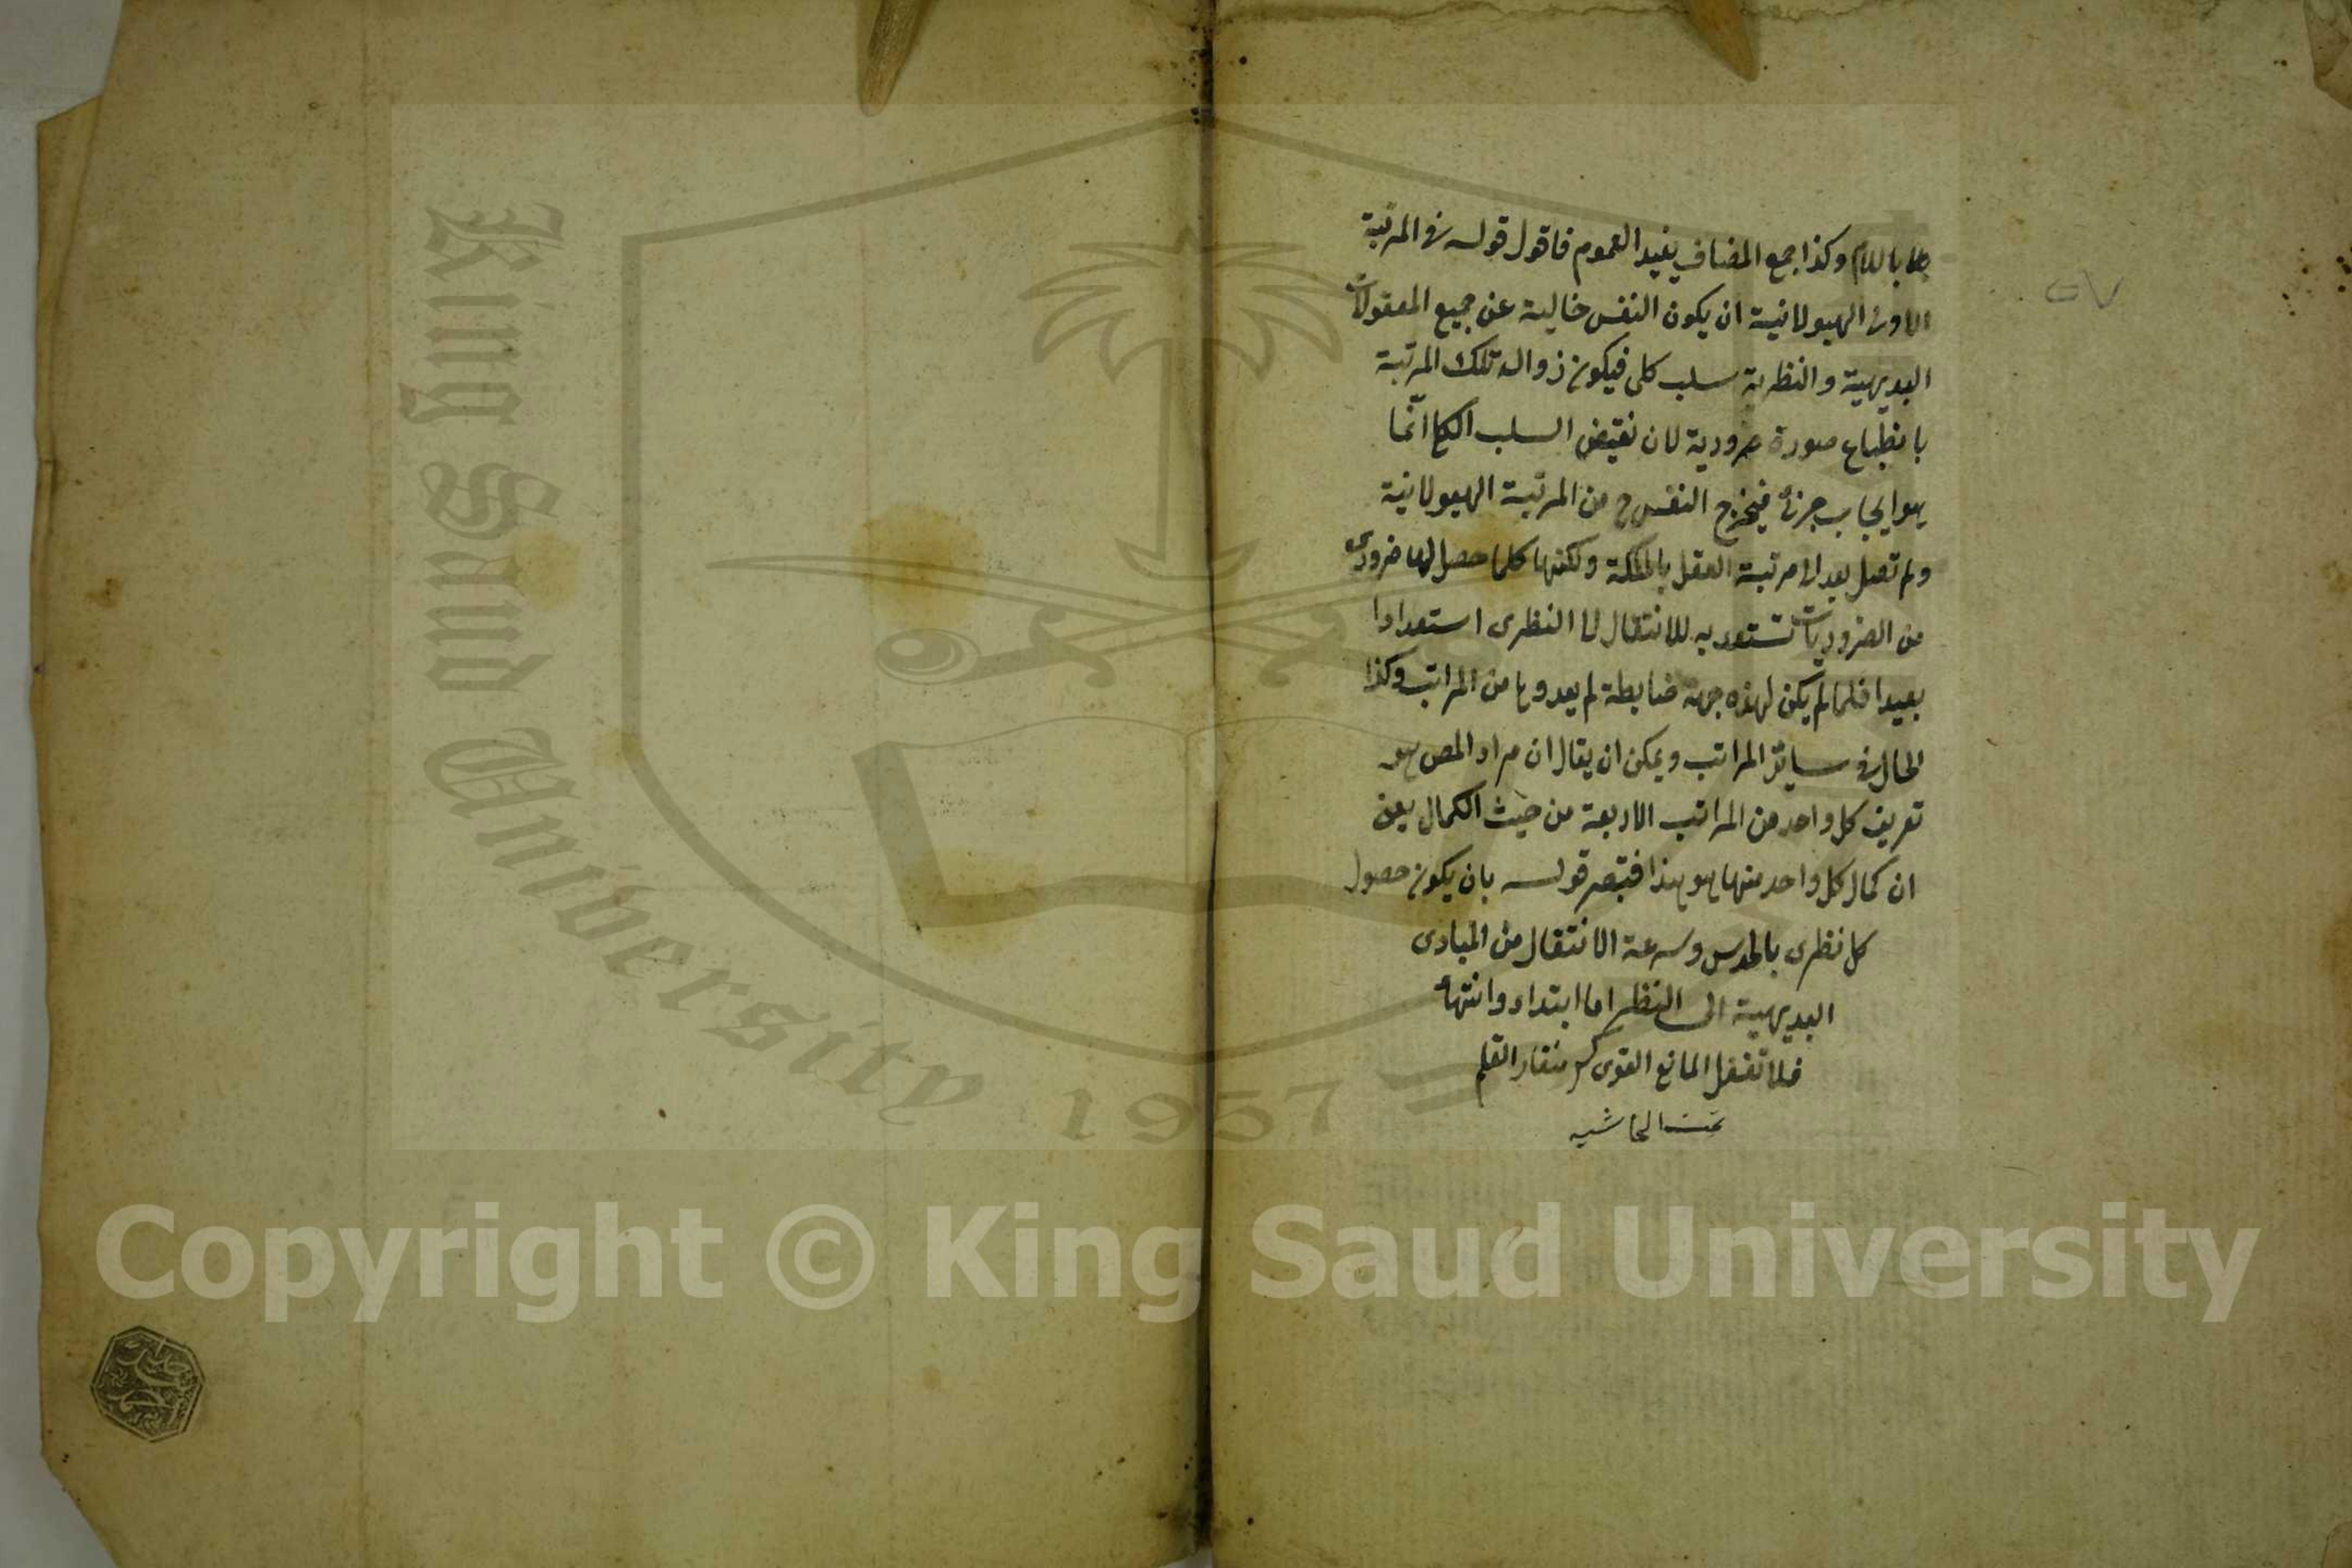 باللام وكذا جمع المضاف يفيد العموم فاقول قوله فى المرتبة
الاولى الهيولانية ان يكون النفس خالية عن جميع المعقولات
البديهية والنظرية سلب كلى فيكون زوال تلك المرتبة
بانطباع صورة ضرورية لان نقيض السلب الكلى انما
هو ايجاب جزئى فيخرج النفس ح من المرتبة الهيولانية
ولم تصل بعد الى مرتبة العقل بالملكة ولكنها كلما حصل لها ضرورى
من الضروريات تستعد به للانتقال الى النظرى استعدادا
بعيدا فلما لم يكن لهذه جهة ضابطة لم يعدوها من المراتب وكذا
الحال فى سائر المراتب ويمكن ان يقال ان مراد المص هو
تعريف كل واحد من المراتب الاربعة من حيث الكمال يعنى
ان كمال كل واحد منها هو هذا قوله بان يكون حصول
كل نظرى بالحدس وسرعة الانتقال من المبادى
البديهية الى النظر اما ابتداء وانتهاء
فلا تغفل المانع القوى كسر منقار القلم
تمت الحاشيه
٥٧
King Saud University
1957
Copyright © King Saud University